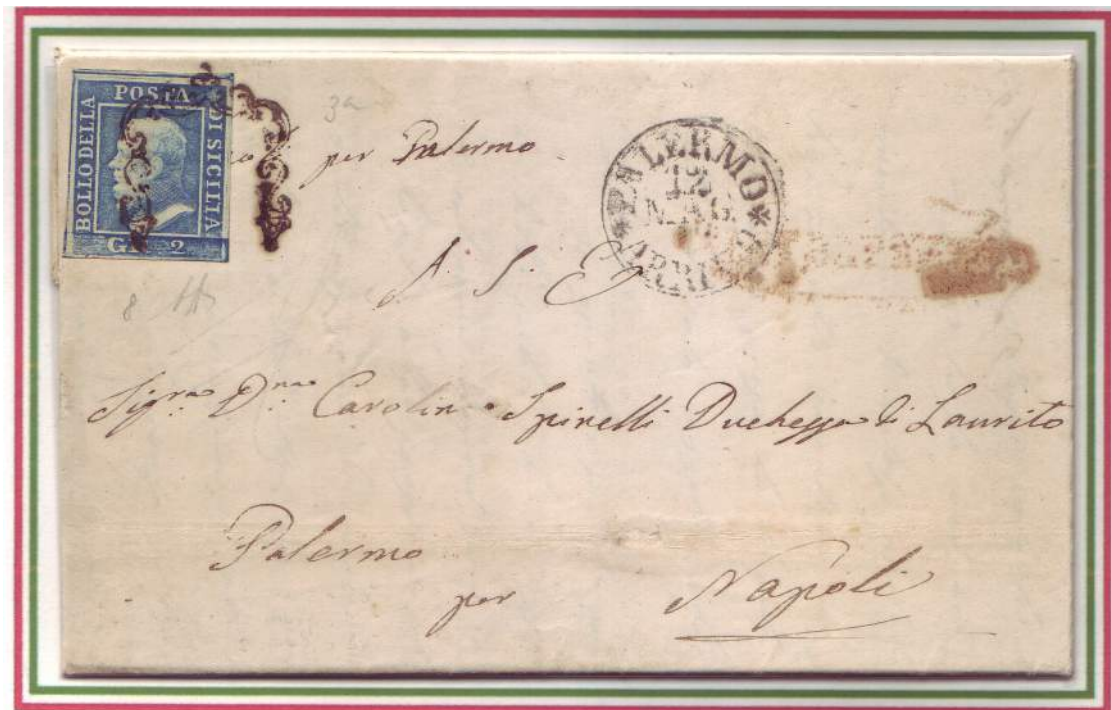 BOLLO DELLA POSTA DI SICILIA
GR. 2
3a
per Palermo
PALERMO
12
MAG
ARRIVO
A. S. E.
8
Sigra Dna Carolina Spinelli Duchessa di Laurito
Palermo
per Napoli